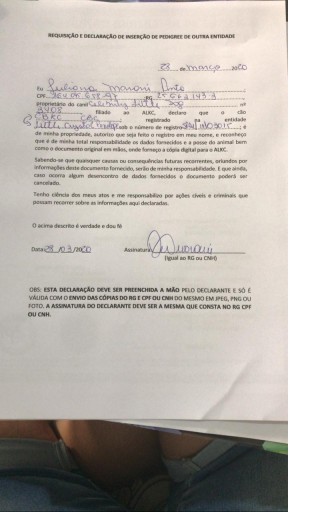 REQUISIÇÃO E DECLARAÇÃO DE INSERÇÃO DE PEDIGREE DE OUTRA ENTIDADE
28 de março 2020
Eu Juliana Mariani Pinto
CPF RG
proprietário do cão nº
filiado ao ALKC, declaro que o cão
CBKC registrado na entidade
sob o número de registro é
de minha propriedade, autorizo que seja feito o registro em meu nome, e reconheço
que é de minha total responsabilidade os dados fornecidos e a posse do animal bem
como o documento original em mãos, onde forneço a cópia digital para o ALKC.
Sabendo-se que quaisquer causas ou consequências futuras recorrentes, oriundos por
informações deste documento fornecido, serão de minha responsabilidade. E que ainda,
caso ocorra algum desencontro de dados fornecidos o documento poderá ser
cancelado.
Tenho ciência dos meus atos e me responsabilizo por ações cíveis e criminais que
possam recorrer sobre as informações aqui declaradas.
O acima descrito é verdade e dou fé
Data 28/03/2020 Assinatura
(Igual ao RG ou CNH)
OBS: ESTA DECLARAÇÃO DEVE SER PREENCHIDA A MÃO PELO DECLARANTE E SÓ É
VÁLIDA COM O ENVIO DAS CÓPIAS DO RG E CPF OU CNH DO MESMO EM JPEG, PNG OU
FOTO. A ASSINATURA DO DECLARANTE DEVE SER A MESMA QUE CONSTA NO RG CPF
OU CNH.